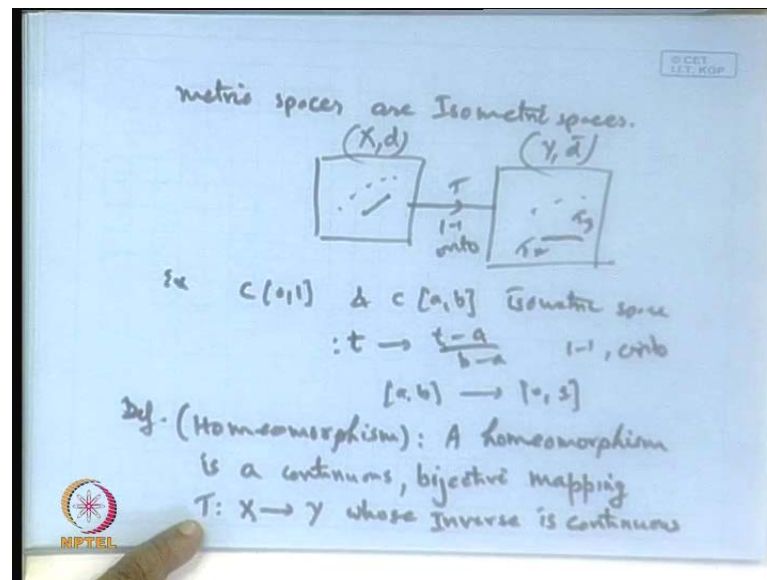 © CET
I.I.T. KGP
metric spaces are Isometric spaces.
(X, d) (Y, d̄)
T
1-1
onto
Tx Ty
Ex C[0,1] & C[a,b] isometric space
: t → t-a / b-a 1-1, onto
[a,b] → [0,1]
Def. (Homeomorphism): A homeomorphism
is a continuous, bijective mapping
T: X → Y whose Inverse is continuous
NPTEL